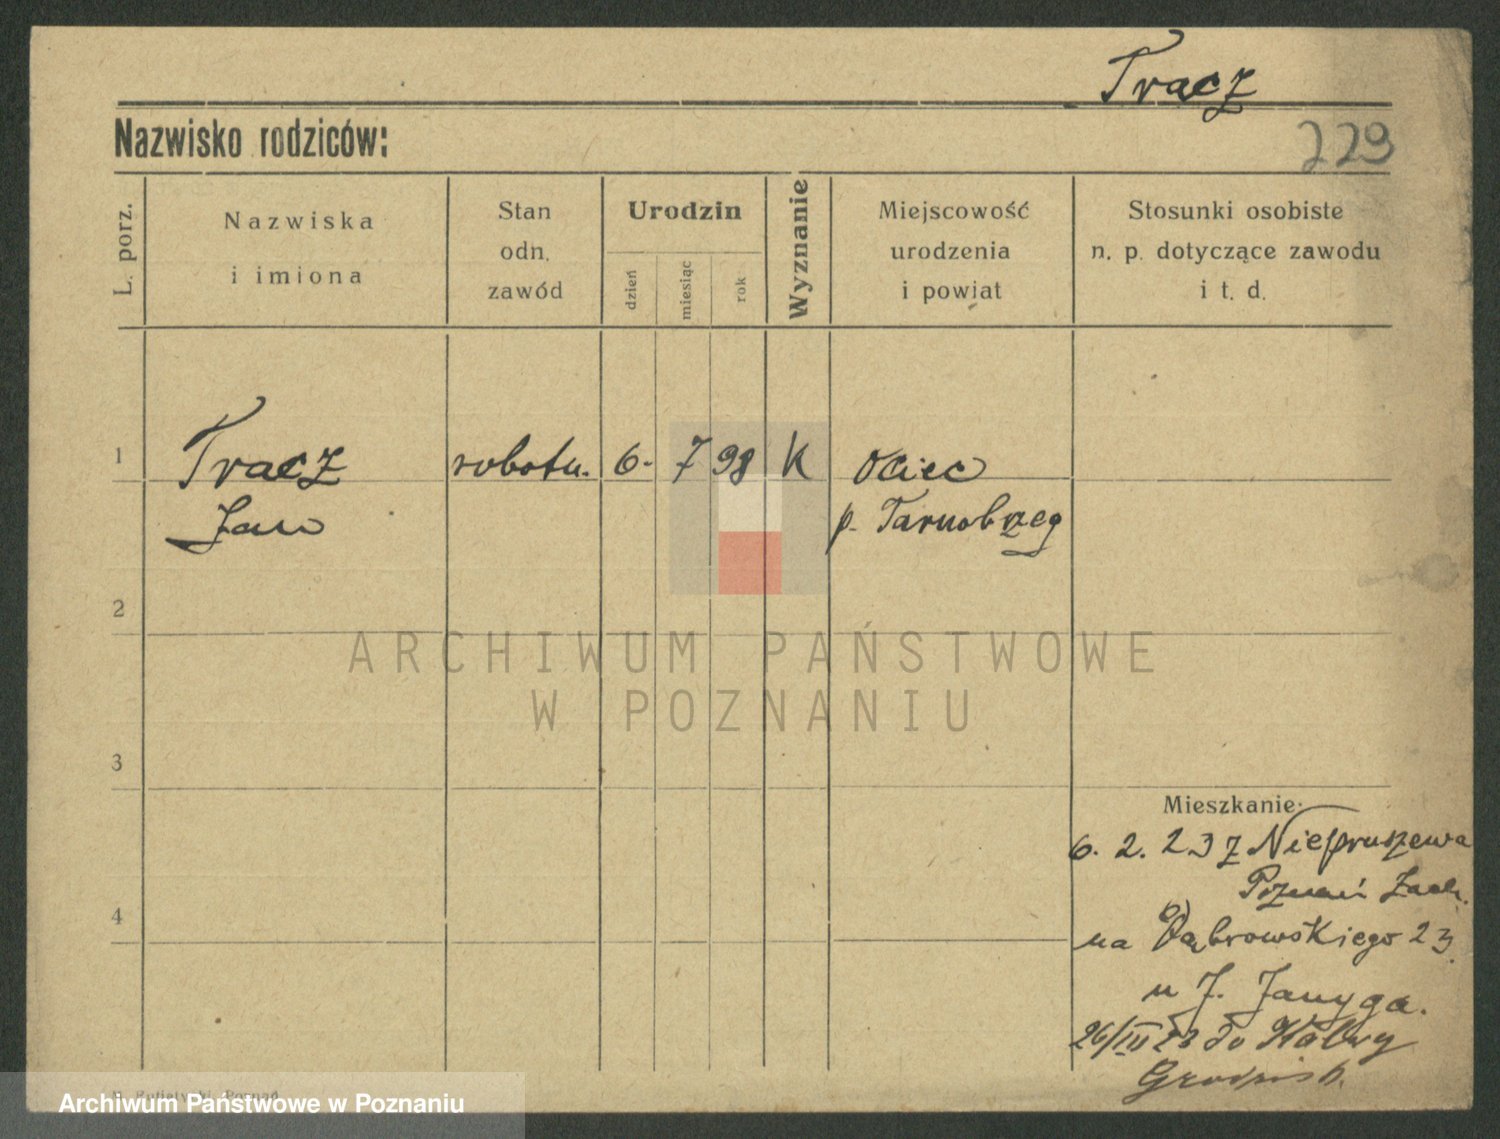 Tracz
Nazwisko rodziców:
229
L. porz.
Nazwiska
i imiona
Stan
odn.
zawód
Urodzin
dzień
miesiąc
rok
Wyznanie
Miejscowość
urodzenia
i powiat
Stosunki osobiste
n. p. dotyczące zawodu
i t. d.
1
Tracz
Jan
robotn.
6.
7
98
K
Ociec
p. Tarnobrzeg
2
ARCHIWUM PAŃSTWOWE
W POZNANIU
3
Mieszkanie:
6. 2. 23 z Niepruszewa
Poznań Zach.
4
na Dąbrowskiego 23.
u J. Januga.
26/III 23 do
Grodzisk.
Archiwum Państwowe w Poznaniu